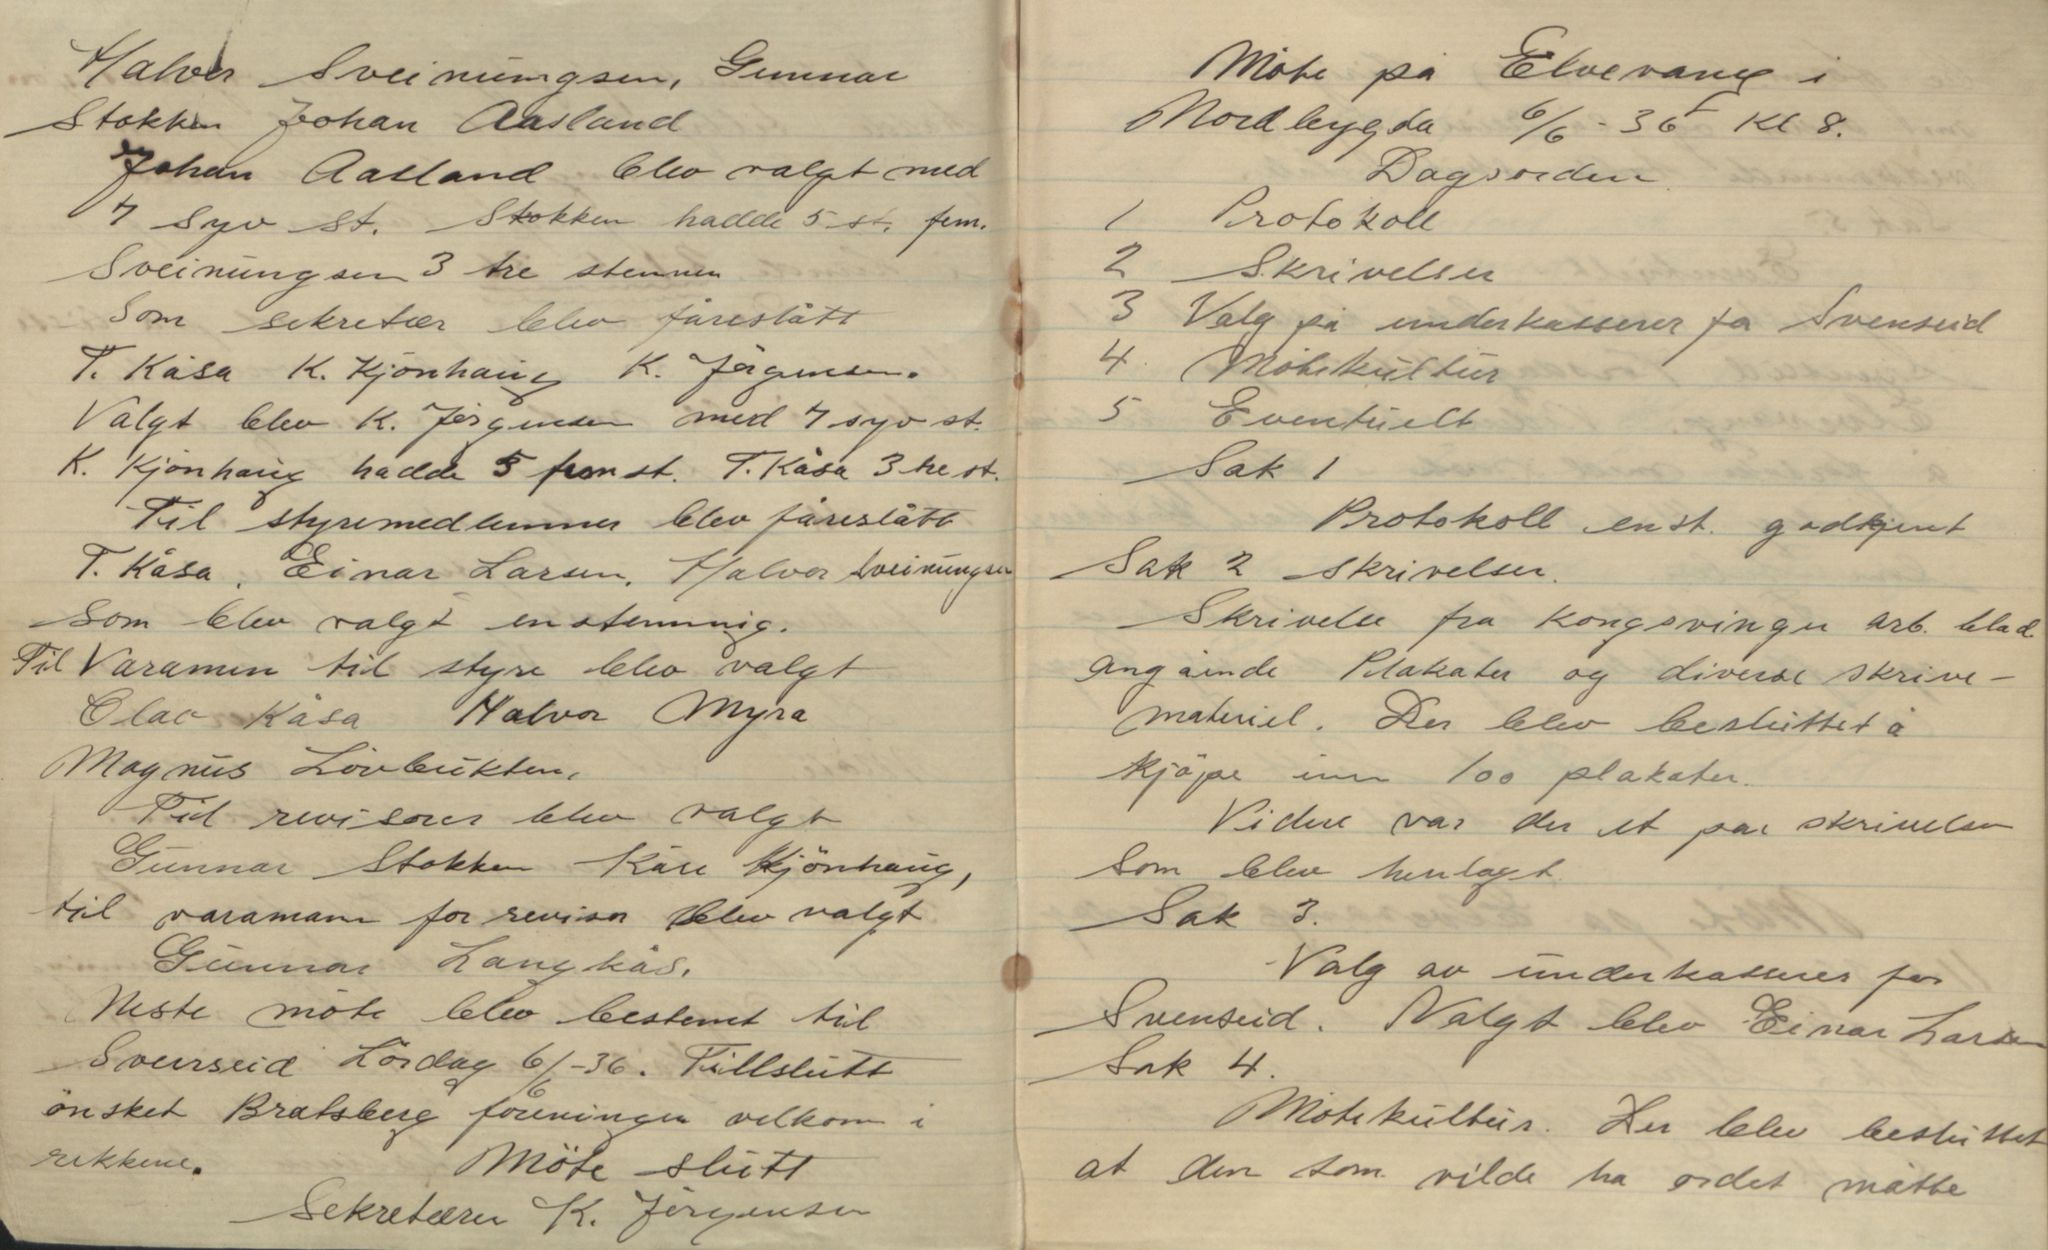 Halvor Sveinungsen, Gunnar
Stokken Johan Aasland
Johan Aasland blev valgt med
7 syv st. Stokken hadde 5 st. fem.
Sveinungsen 3 tre stemmer
Som sekretær blev føreslått
T. Kåsa K. Kjönhaug K. Jørgensen.
Valgt blev K. Jørgensen med 7 syv st.
K. Kjönhaug hadde 5 fem st. T. Kåsa 3 tre st.
Til styremedlemmer blev føreslått
T. Kåsa. Einar Larsen. Halvor Sveinungsen
Som blev valgt enstemmig.
Til Varamen til styre blev valgt
Olav Kåsa Halvor Myra
Magnus Lövbukten.
Til revisorer blev valgt
Gunnar Stokken Kåre Kjönhaug,
til varamann for revisor blev valgt
Gunnar Langkås.
Neste möte blev bestemt til
Svenseid Lördag 6/6-36. Tillslutt
önsket Bratsberg föreningen velkom i
rekkene. Möte slutt
Sekretærer K. Jörgensen
Möte på Elvevang i
Nordbygda 6/6-36 Kl 8.
Dagsorden
1 Protokoll
2 Skrivelser
3 Valg på underkasserer for Svenseid
4. Mötekultur
5 Eventuelt
Sak 1
Protokoll enst. godkjent
Sak 2 Skrivelser.
Skrivelse fra Kongsvinger arb. blad
angående Plakater og diverse skrive-
materiel. Der blev besluttet å
kjöpe inn 100 plakater.
Videre var der et par skrivelser
som blev henlagt.
Sak 3.
Valg av underkasserer for
Svenseid. Valgt blev Einar Larsen
Sak 4.
Mötekultur. Der blev besluttet
at den som vilde ha ordet måtte